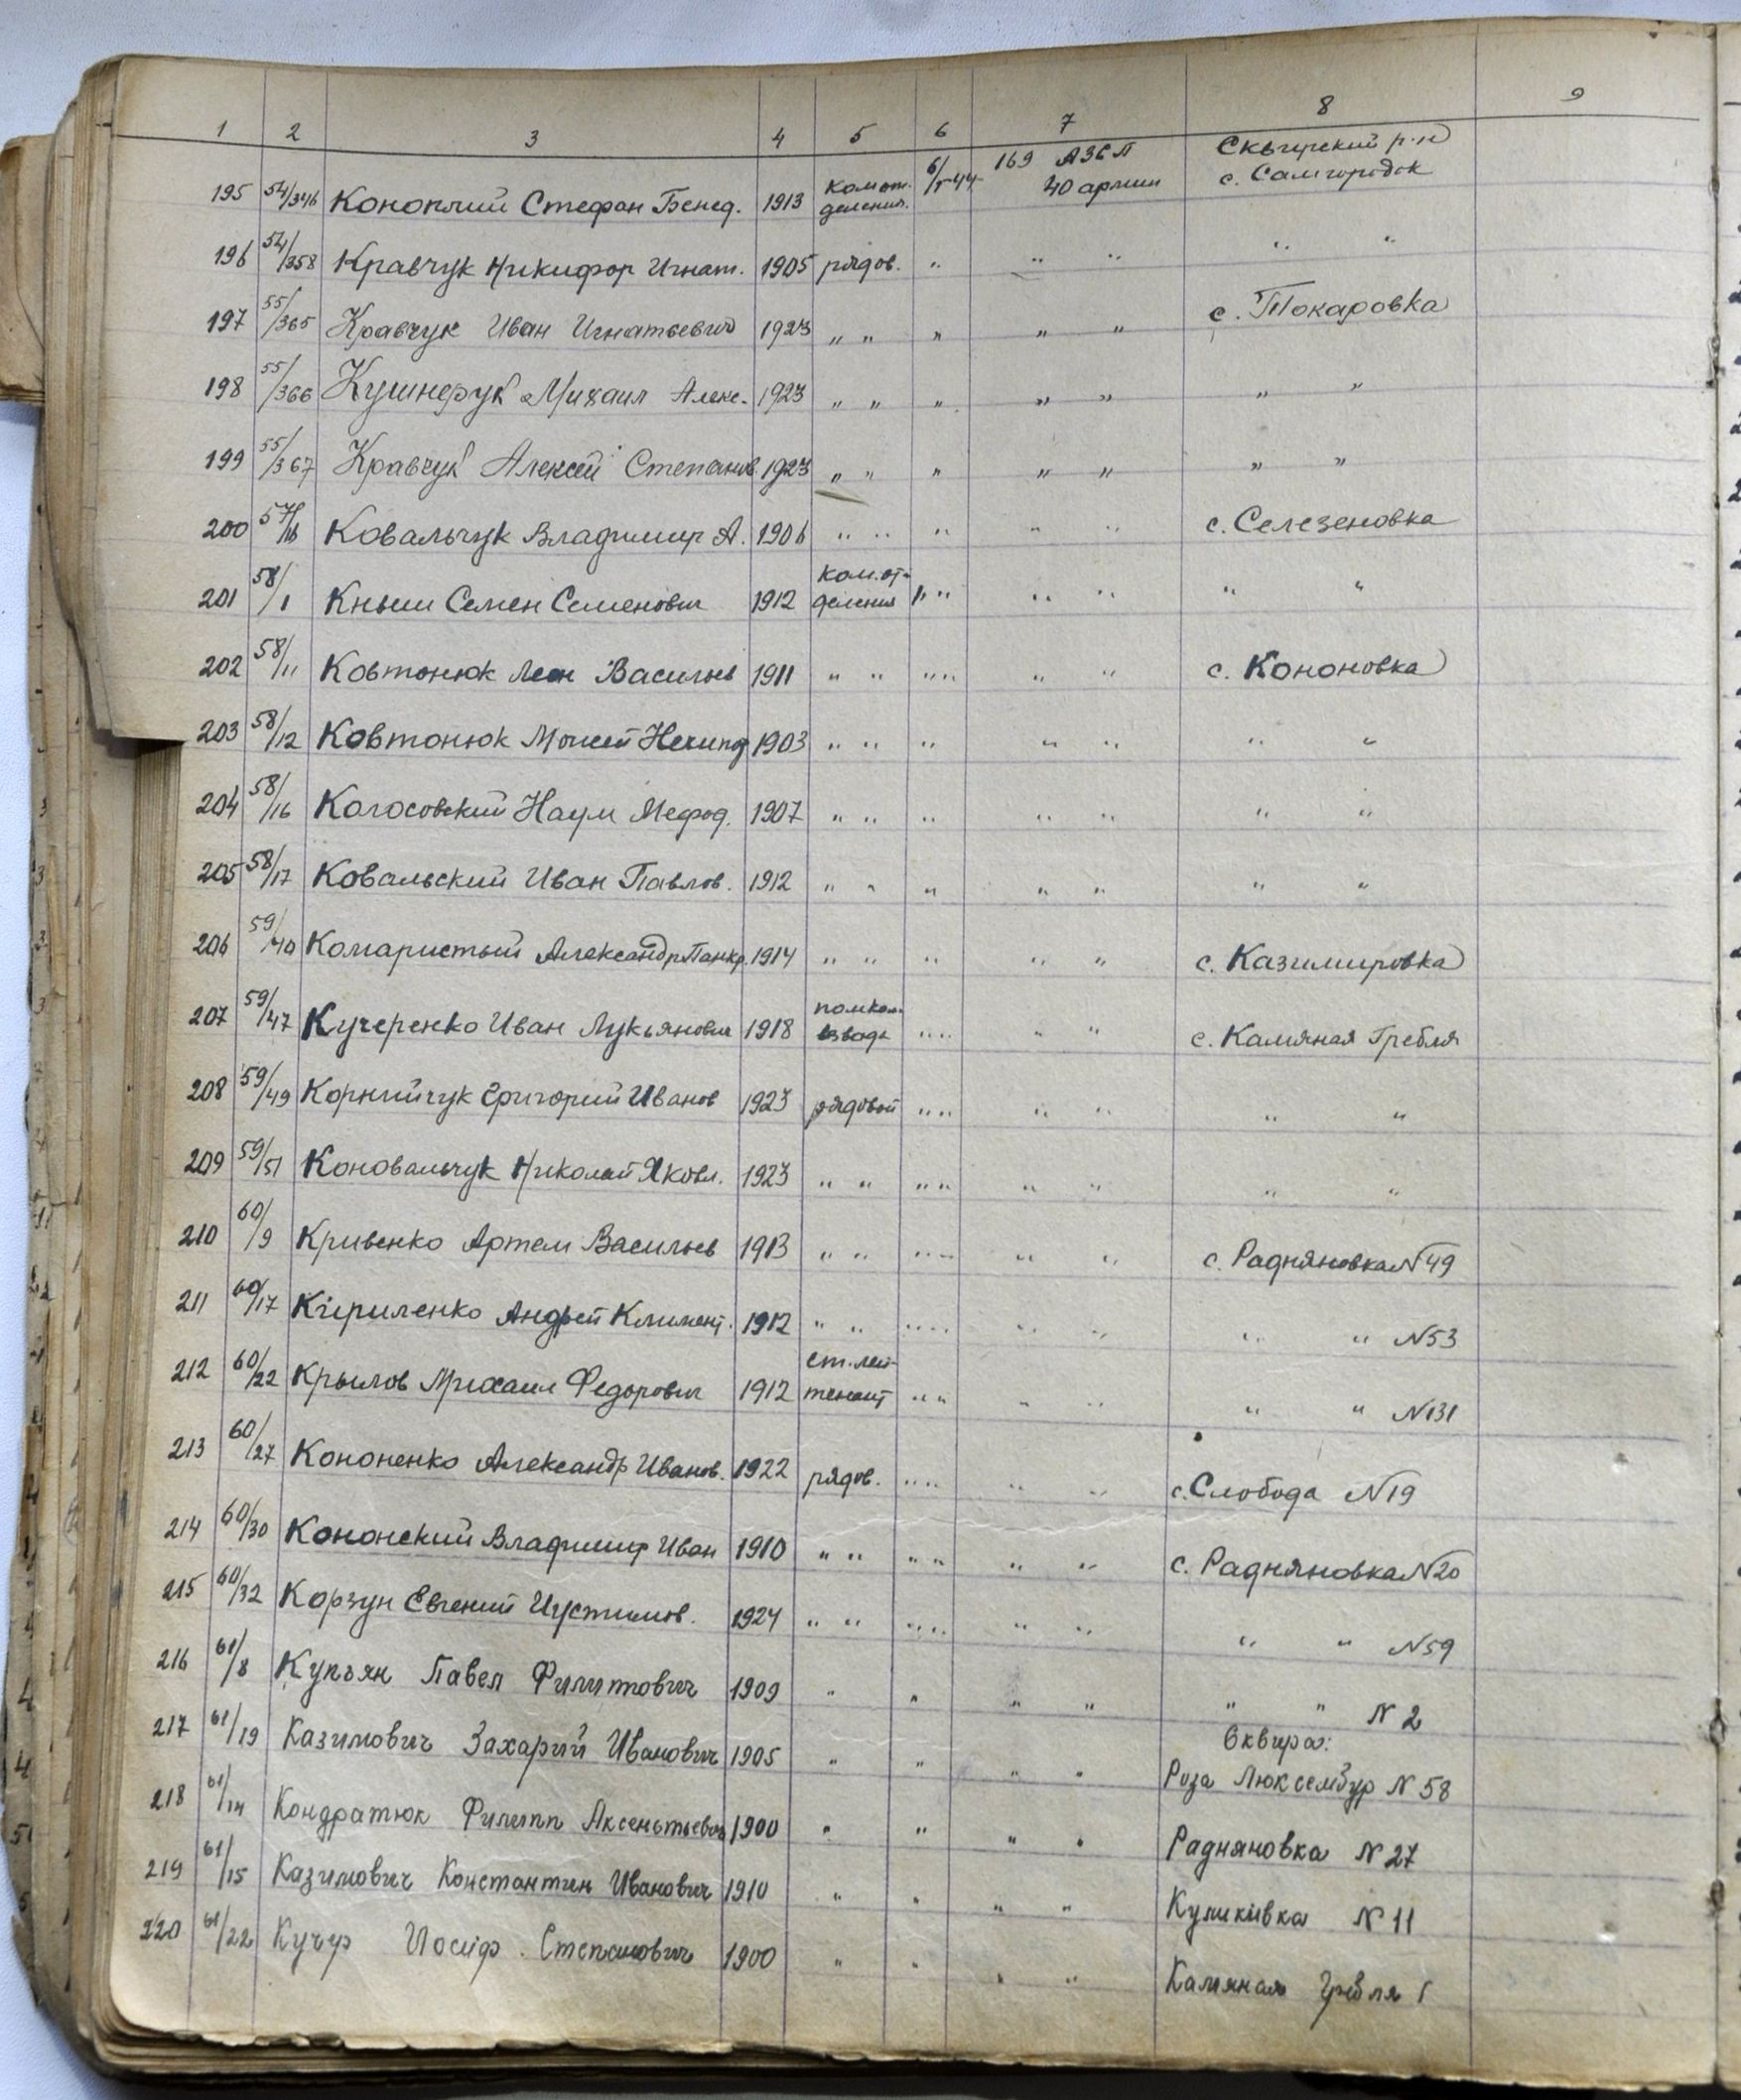 1 2 3 4 5 6 7 8 9
195 54/346 Коноплий Стефан Бенед. 1913 ком. от-деления. 6/V-44 169 АЗСП 40 армии Сквирский р-н с. Самгородок
196 54/358 Кравчук Никифор Игнат. 1905 рядов. " " " " "
197 55/365 Кравчук Иван Игнатьевич 1923 " " " " " с. Токаровка
198 55/366 Кушнерук Михаил Алекс. 1923 " " " " " " "
199 55/367 Кравчук Алексей Степанов. 1923 " " " " " " "
200 57/16 Ковальчук Владимир А. 1906 " " " " " с. Селезеновка
201 58/1 Кныш Семен Семенович 1912 ком. от-деления " " " " " "
202 58/11 Ковтонюк Леон Васильев 1911 " " " " " " с. Кононовка
203 58/12 Ковтонюк Моисей Нечипор 1903 " " " " " " "
204 58/16 Колосовский Наум Мефод. 1907 " " " " " " "
205 58/17 Ковальский Иван Павлов. 1912 " " " " " " "
206 59/40 Комаристый Александр Панкр. 1914 " " " " " с. Казимировка
207 59/47 Кучеренко Иван Лукьянович 1918 помком. взвода " " " " с. Камяная Гребля
208 59/49 Корнийчук Григорий Иванов 1923 рядовой " " " " " "
209 59/51 Коновальчук Николай Яковл. 1923 " " " " " " " "
210 60/9 Кривенко Артем Васильев 1913 " " " " " " с. Радняновка N49
211 60/17 Кириленко Андрей Климент. 1912 " " " " " " " " N53
212 60/22 Крылов Михаил Федорович 1912 ст. лей-тенант " " " " " " N131
213 60/27 Кононенко Александр Иванов. 1922 рядов. " " " " с. Слобода N19
214 60/30 Кононский Владимир Иван 1910 " " " " " " с. Радняновка N20
215 60/32 Корзун Евгений Иустимов. 1924 " " " " " " " " N59
216 61/8 Купьян Павел Филиппович 1909 " " " " " " N 2
217 61/19 Казимович Захарий Иванович 1905 " " " " Сквира: Роза Люксембур N 58
218 61/14 Кондратюк Филипп Аксентьевич 1900 " " " " Радняновка N 27
219 61/15 Казимович Константин Иванович 1910 " " " " Куликивка N 11
220 61/22 Кучер Иосиф Степанович 1900 " " " " Камяная Гребля 1